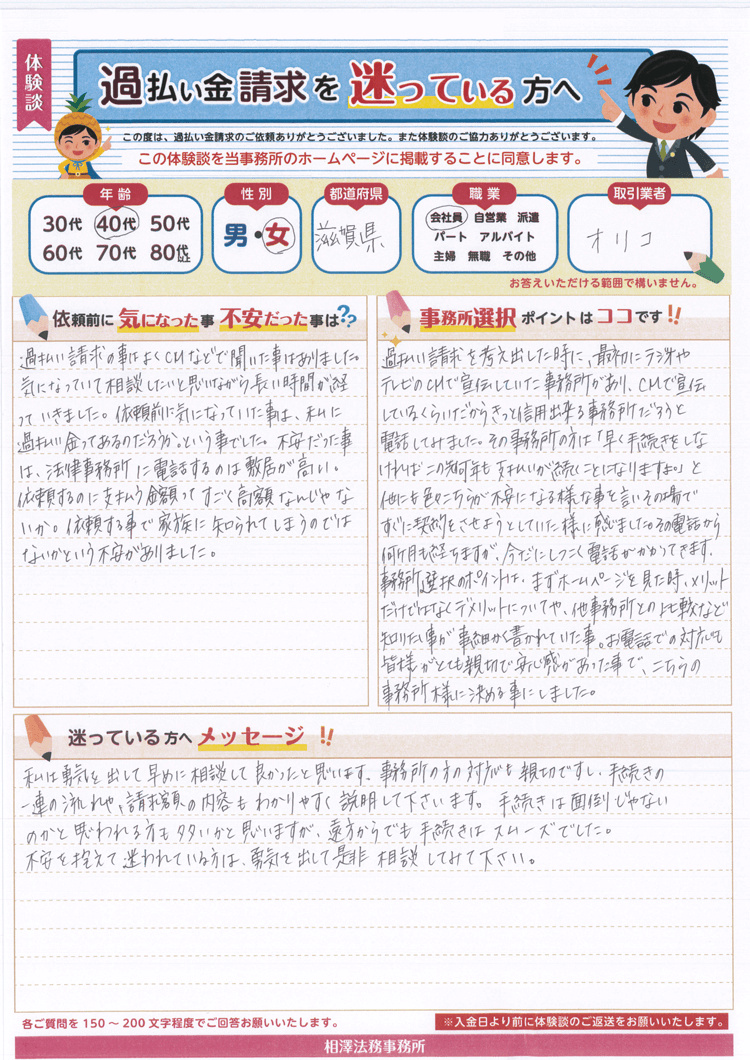 体験談
過払い金請求を迷っている方へ
この度は、過払い金請求のご依頼ありがとうございました。また体験談のご協力ありがとうございます。
この体験談を当事務所のホームページに掲載することに同意します。
年齢
30代 40代 50代
60代 70代 80代
性別
男・女
都道府県
滋賀県
職業
会社員 自営業 派遣
パート アルバイト
主婦 無職 その他
取引業者
オリコ
お答えいただける範囲で構いません。
依頼前に気になった事 不安だった事は??
過払い請求の事はよくCMなどで聞いた事はありました。
気になっていて相談したいと思いながら長い時間が経
っていきました。依頼前に気になっていた事は、私に
過払い金ってあるのだろうか。という事でした。不安だった事
は、法律事務所に電話するのは敷居が高い。
依頼するのに支払う金額ってすごく高額なんじゃな
いか。依頼する事で家族に知られてしまうのでは
ないかという不安がありました。
事務所選択ポイントはココです!!
過払い請求を考え出した時に、最初にラジオや
テレビのCMで宣伝していた事務所があり、CMで宣伝
しているくらいだからきっと信用出来る事務所だろうと
電話してみました。その事務所の方は「早く手続きをしな
ければこの先何年も支払いが続くことになりますよ。」と
他にも色々こちらが不安になる様な事を言いその場で
すぐに契約をさせようとしていた様に感じました。その電話から
何ヶ月も経ちますが、今だにしつこく電話がかかってきます。
事務所選択のポイントは、まずホームページを見た時、メリット
だけではなくデメリットについてや、他事務所との比較など
知りたい事が事細かく書かれていた事。お電話での対応も
皆様がとても親切で安心感があった事で、こちらの
事務所様に決める事にしました。
迷っている方へメッセージ!!
私は勇気を出して早めに相談して良かったと思います。事務所の方の対応も親切ですし、手続きの
一連の流れや、請求額の内容もわかりやすく説明して下さいます。手続きは面倒じゃない
のかと思われる方も多いかと思いますが、遠方からでも手続きはスムーズでした。
不安を抱えて迷われている方は、勇気を出して是非相談してみて下さい。
各ご質問を150～200文字程度でご回答お願いいたします。
※入金日より前に体験談のご返送をお願いいたします。
相澤法務事務所